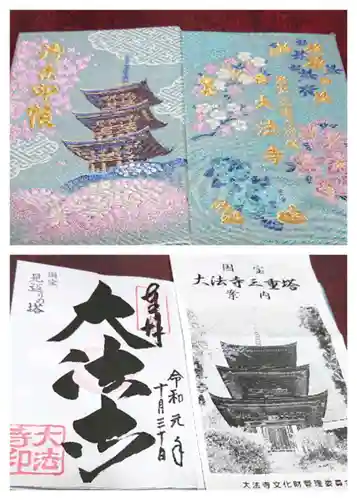 御朱印帳
国宝三重塔
大法寺
奉拝
大法寺
国宝
見返りの塔
令和元年
十月三十日
大法
寺印
国宝
大法寺三重塔
案内
大法寺文化財管理委員会